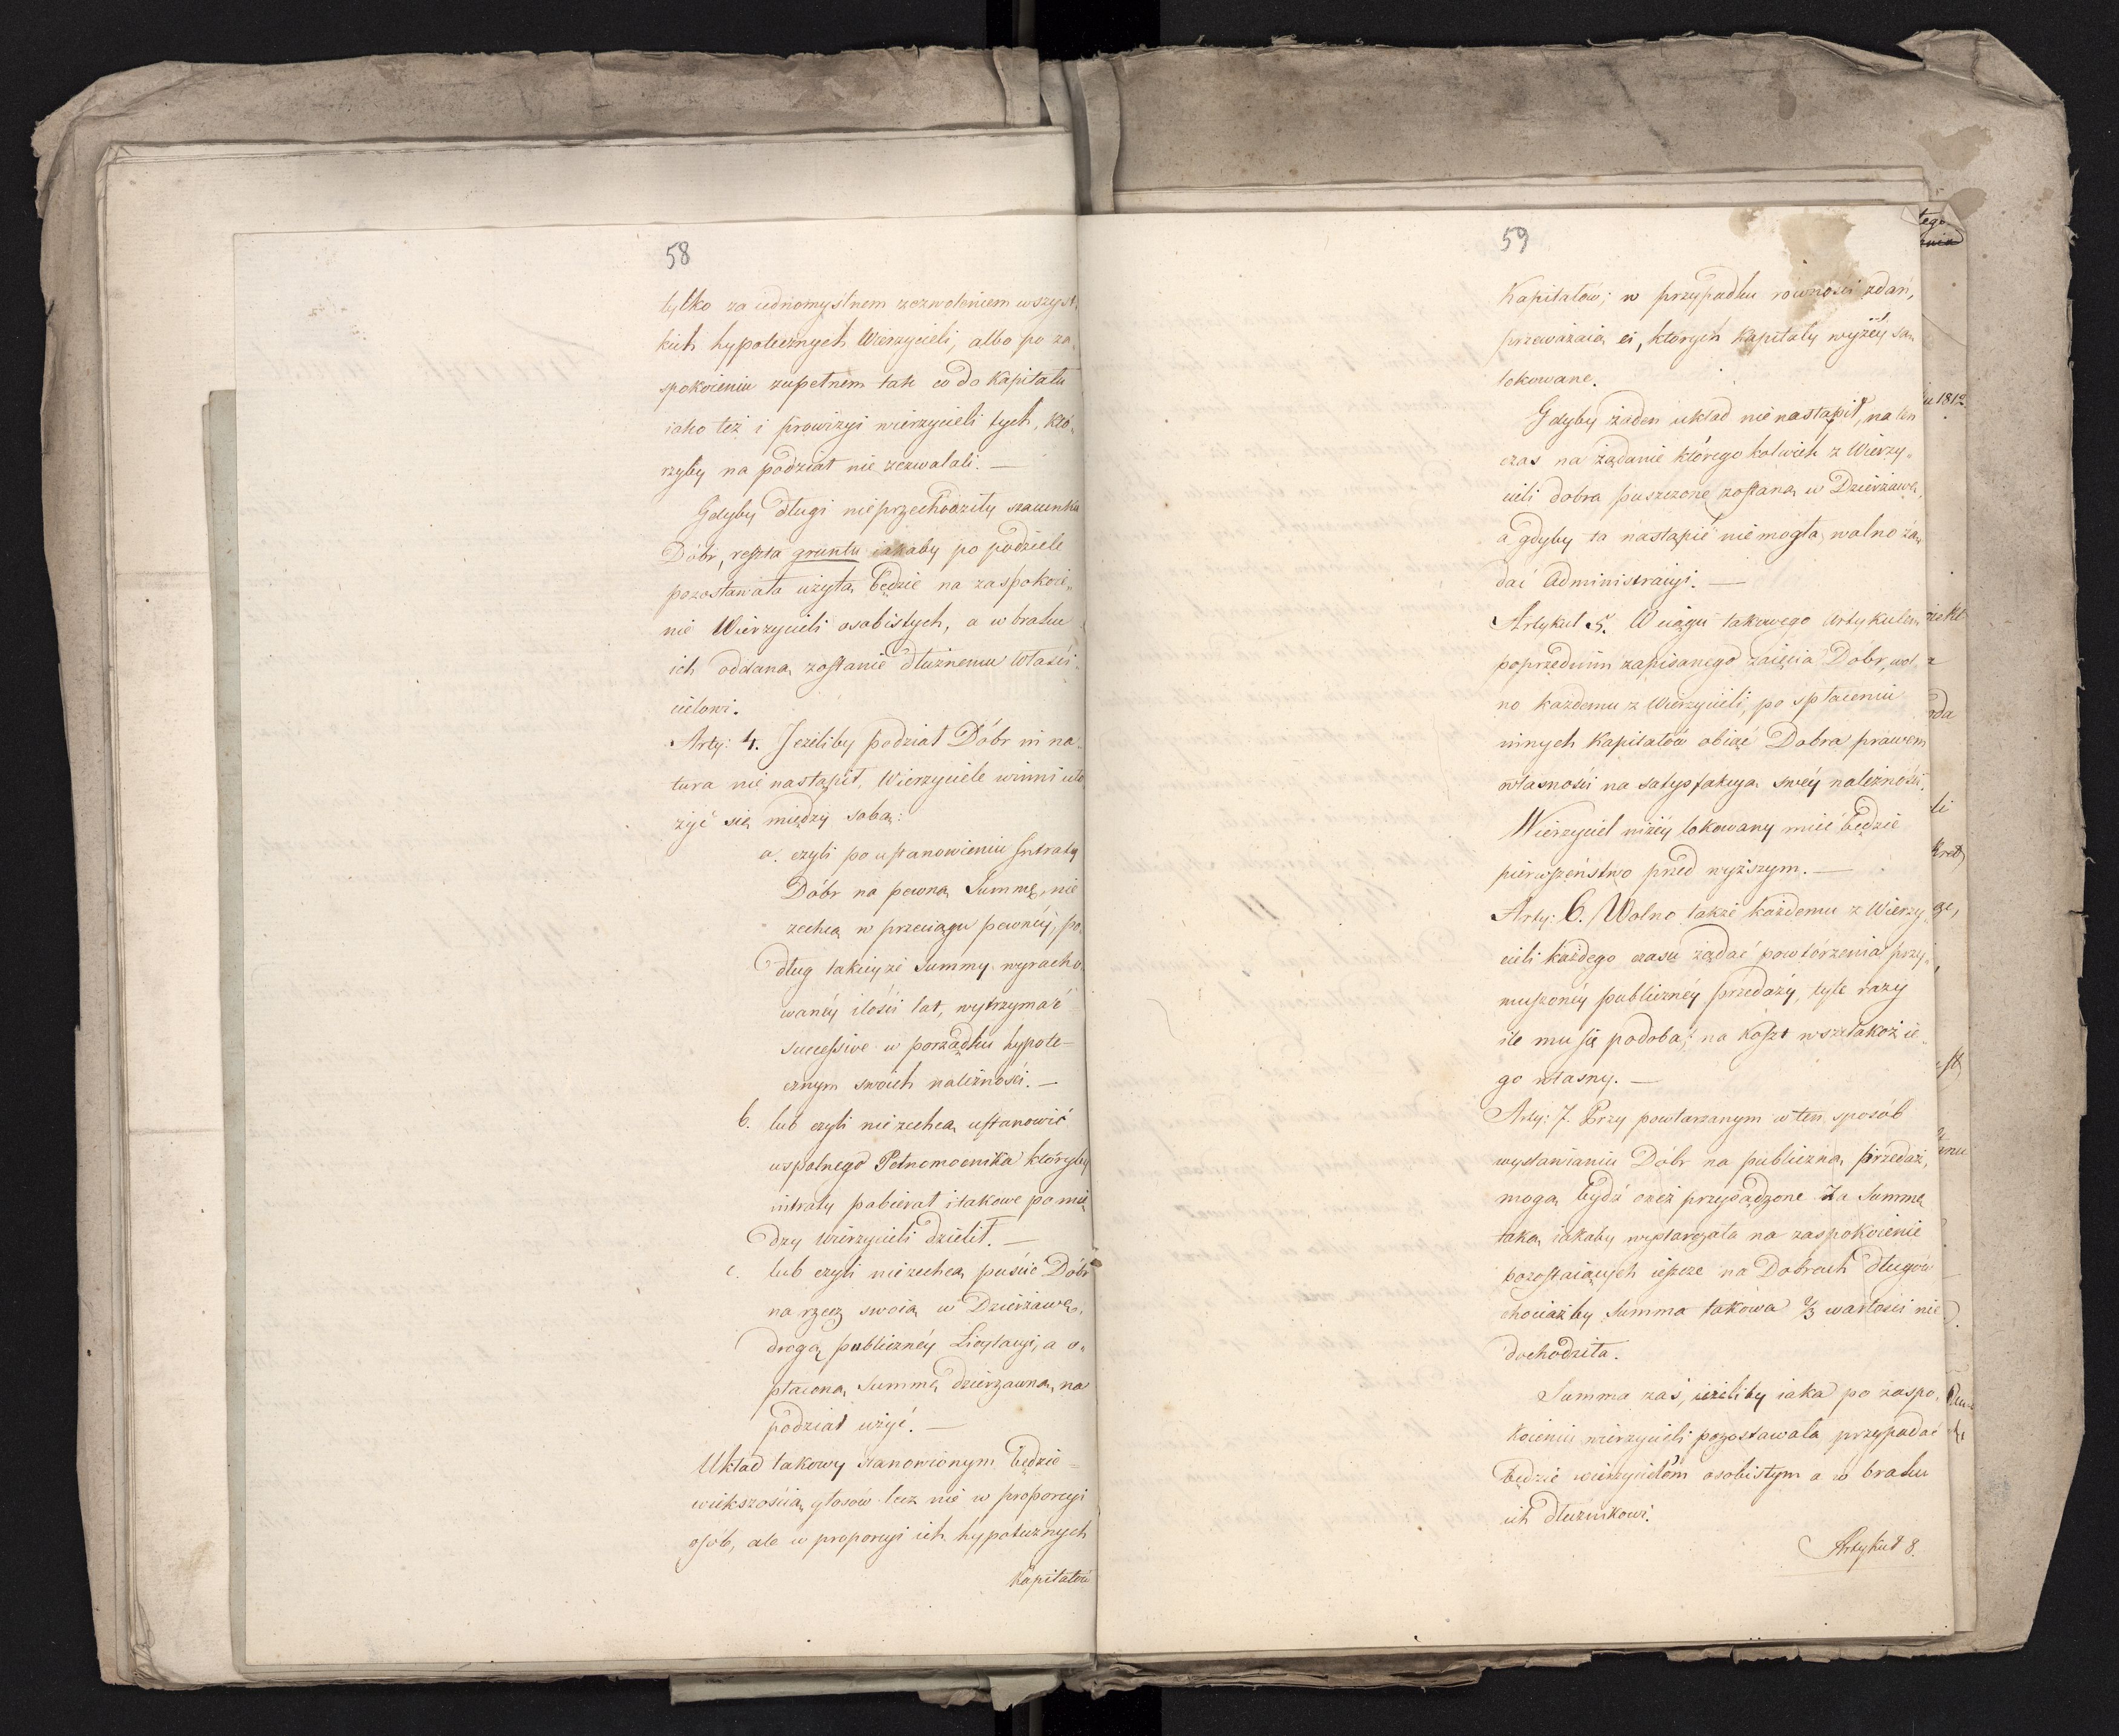 58
tylko za iednomyślnem zezwoleniem wszyst,
kich hypotecznych Wierzycieli, albo po za,
spokoieniu zupełnem tak co do Kapitału
iako też i prowizyi wierzycieli tych, któ,
rzyby na podział nie zezwalali. —
Gdyby długi nieprzechodziły szacunku
Dóbr, reszta gruntu iakaby po podziele
pozostawała użytą będzie na zaspokoie,,
nie Wierzycieli osobistych, a w braku
ich oddaną zostanie dłużnemu Właści,
cielowi.
Arty: 4. Jeżeliby podział Dóbr in na,
tura nie nastąpił, Wierzyciele winni uło
żyć się między sobą:
a. czyli po ustanowieniu Intraty
Dóbr na pewną Summę, nie
zechcą w przeciągu pewnéy, po,
dług takieyże Summy wyracho,
wanéy ilości lat, wytrzymać
successive w porządku hypote=
cznym swoich należności. —
b. lub czyli nie zechcą ustanowić
wspolnego Pełnomocnika któryby
intraty pobierał i takowe pomię
dzy Wierzycieli dzielił. —
c. lub czyli nie zechcą puścić Dóbr
na rzecz swoią w Dzierżawę,
drogą publicznéy Licytacyi, a o,
płaconą Summę dzierżawną, na
podział użyć. —
Układ takowy stanowionym będzie =
większością głosów lecz nie w proporcyi
osób, ale w proporcyi ich hypotecznych
Kapitałów
59
Kapitałów; w przypadku równości zdań,
przeważaią ci, których Kapitały wyżéy są
lokowane.
Gdyby żaden układ nie nastąpił, na ten
czas na żądanie któregokolwiek z Wierzy,,
cieli dobra puszczone zostaną w Dzierżawę,
a gdyby ta nastąpić nie mogła, wolno żą,
dać Administracyi. —
Artykuł 5. W ciągu takowego Artykułem
poprzednim zapisanego zaięcia Dóbr, wol,
no każdemu z Wierzycieli, po spłaceniu
innych Kapitałów obiąć Dobra prawem
własności na satysfakcyą swéy należności.
Wierzyciel niżéy lokowany mieć będzie
pierwszeństwo przed wyższym. —
Arty: 6. Wolno także każdemu z Wierzy,
cieli każdego czasu żądać powtórzenia przy,
muszonéy publicznéy przedaży, tyle razy
ile mu się podoba; na koszt wszelakoż ie,
go własny. —
Arty: 7. Przy powtarzanym w ten sposób
wystawianiu Dóbr na publiczną przedaż,
mogą bydź oneż przysądzone za Summę
taką iakaby wystarczała na zaspokoienie
pozostaiących ieszcze na Dobrach długów
chociażby Summa takowa 2/3 wartości nie
dochodziła.
Summa zaś, ieżeliby iaka po zaspo,
koieniu wierzycieli pozostawała przypadać
będzie wierzycielom osobistym a w braku
ich dłużnikowi.
Artykuł 8.
tego
1812